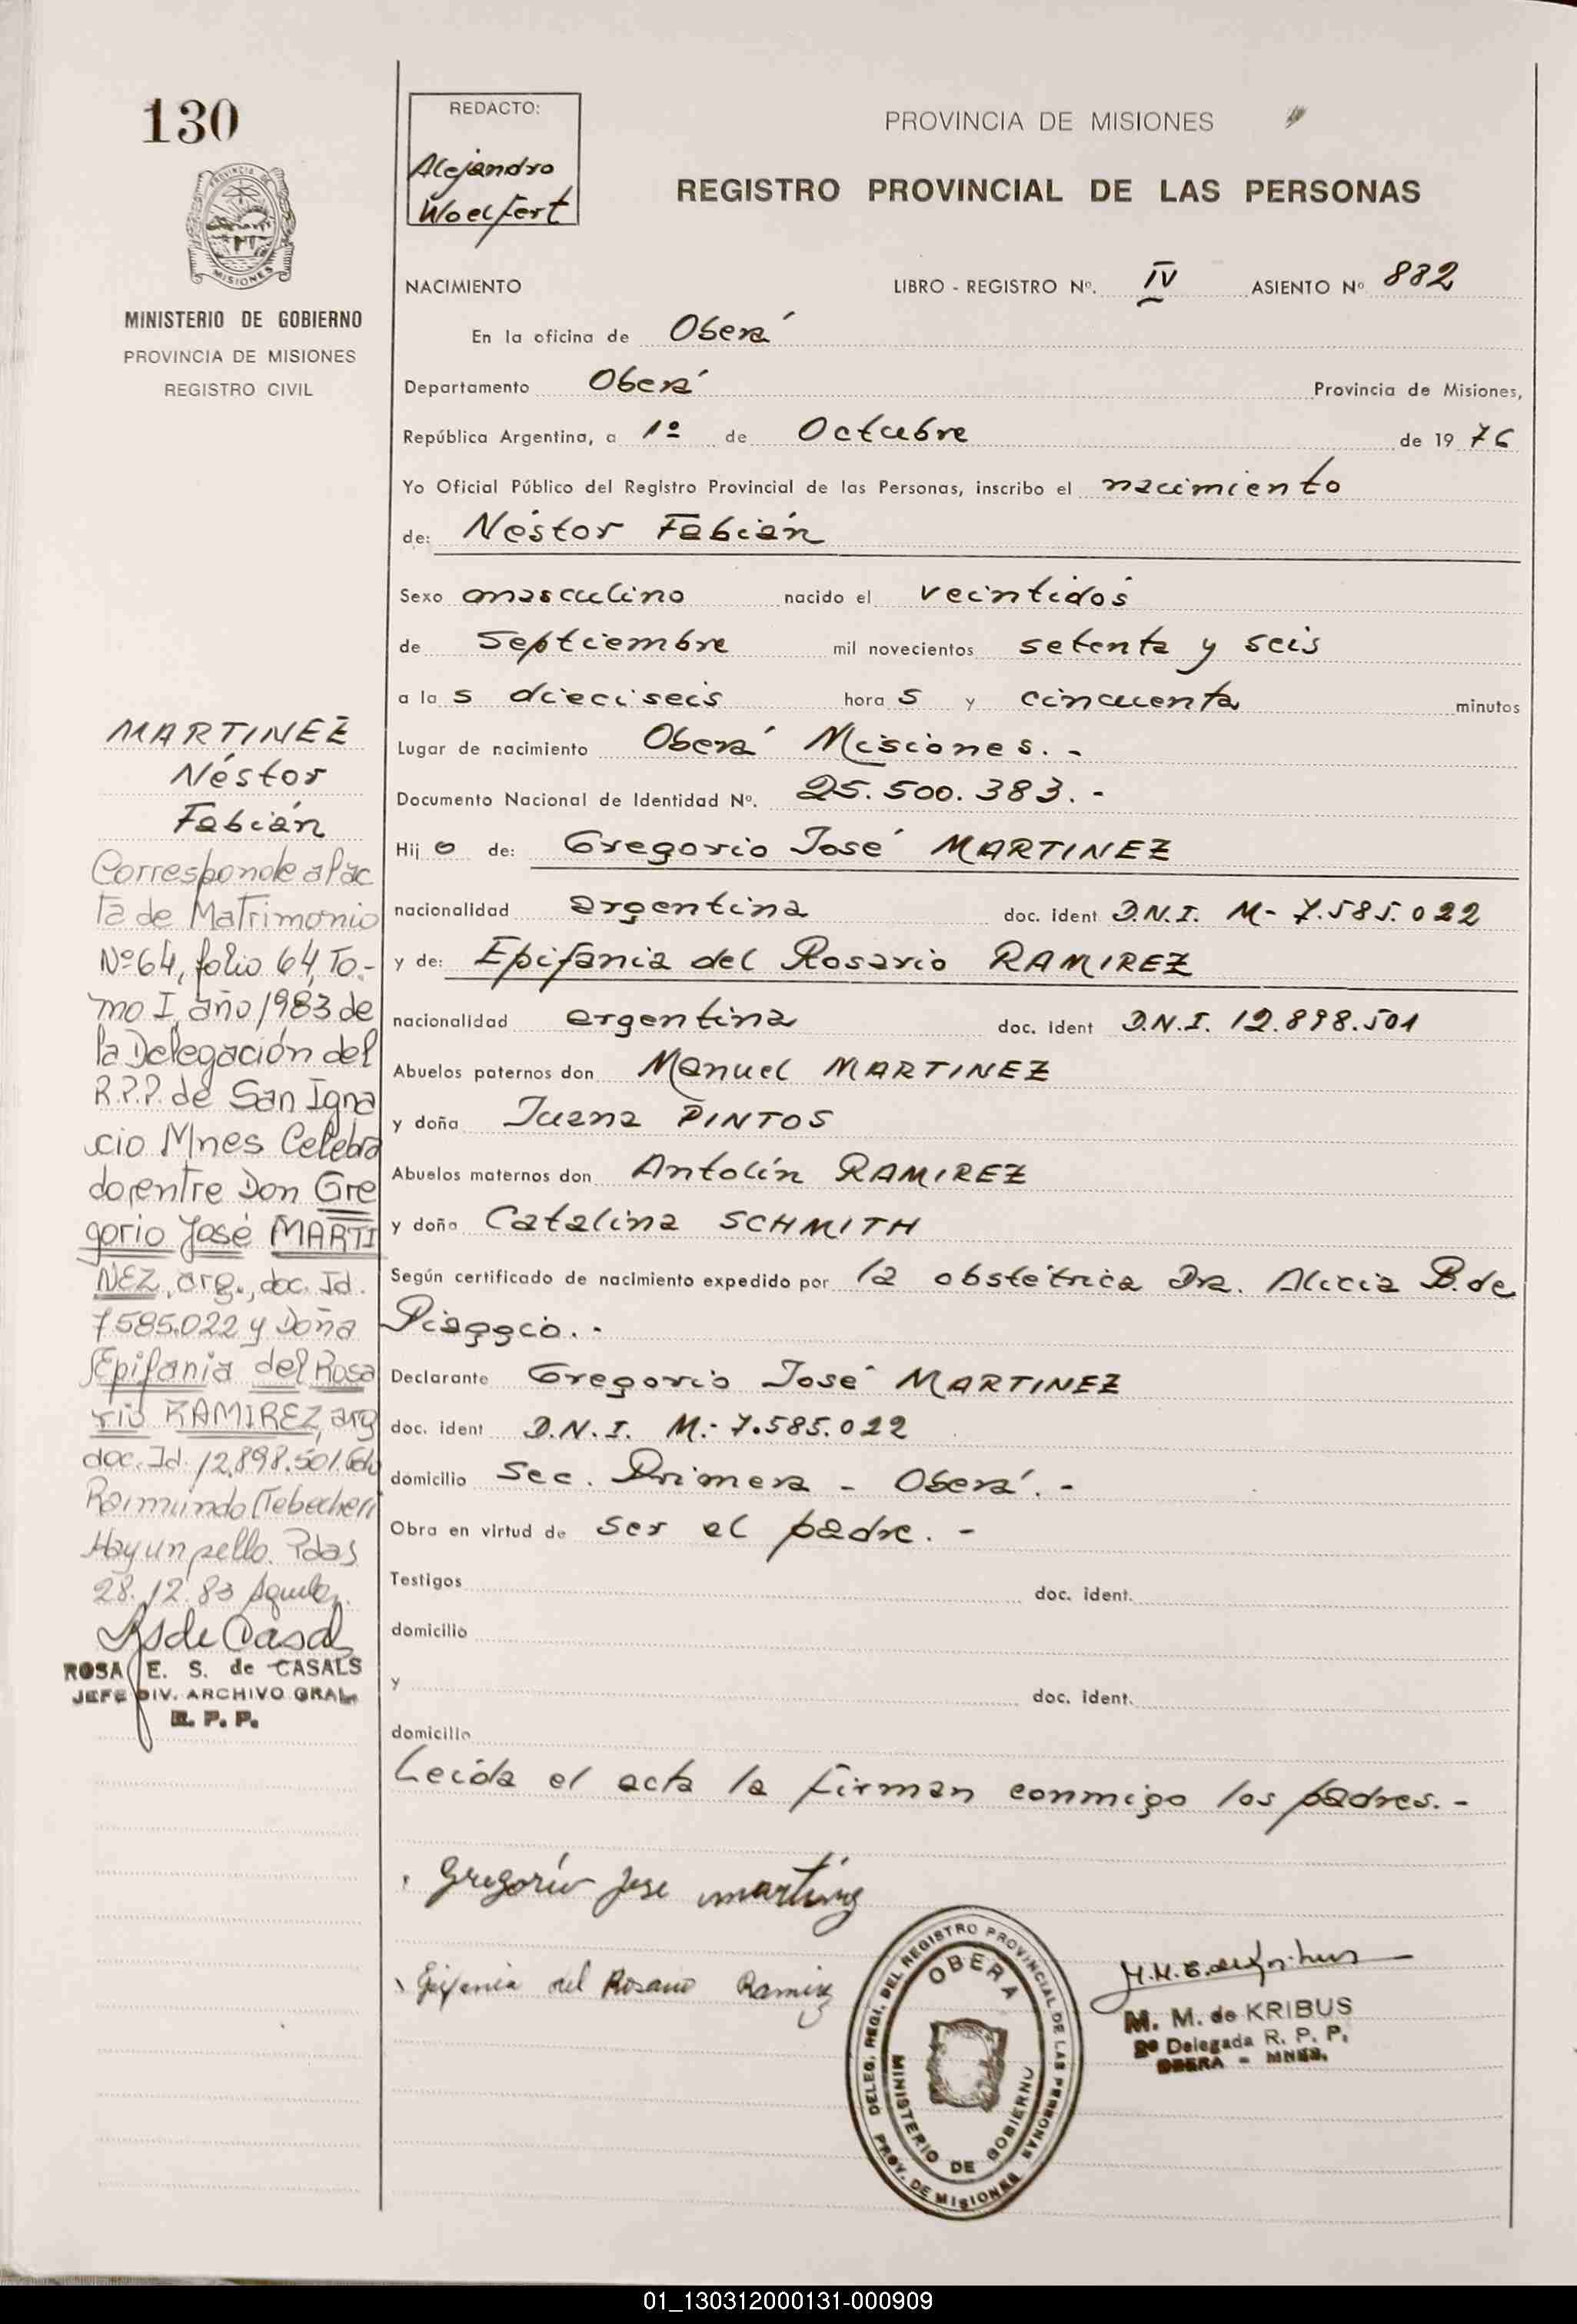 130
PROVINCIA DE
MISIONES
MINISTERIO DE GOBIERNO
PROVINCIA DE MISIONES
REGISTRO CIVIL
REDACTO:
Alejandro
Woelfert
PROVINCIA DE MISIONES
REGISTRO PROVINCIAL DE LAS PERSONAS
NACIMIENTO LIBRO - REGISTRO Nº. IV ASIENTO Nº 882
En la oficina de Oberá
Departamento Oberá Provincia de Misiones,
República Argentina, a 1º de Octubre de 19 76
Yo Oficial Público del Registro Provincial de las Personas, inscribo el nacimiento
de: Néstor Fabián
Sexo masculino nacido el veintidós
de Septiembre mil novecientos setenta y seis
a la s dieciseis hora s y cincuenta minutos
Lugar de nacimiento Oberá Misiones. -
Documento Nacional de Identidad Nº. 25.500.383. -
Hij o de: Gregorio José MARTINEZ
nacionalidad argentina doc. ident D.N.I. M- 7.585.022
y de: Epifania del Rosario RAMIREZ
nacionalidad argentina doc. ident D.N.I. 12.898.501
Abuelos paternos don Manuel MARTINEZ
y doña Juana PINTOS
Abuelos maternos don Antolín RAMIREZ
y doña Catalina SCHMITH
Según certificado de nacimiento expedido por la obstétrica Dra. Alicia B. de
Piaggio. -
Declarante Gregorio José MARTINEZ
doc. ident D.N.I. M.- 7.585.022
domicilio Sec. Primera - Oberá. -
Obra en virtud de ser el padre. -
Testigos doc. ident.
domicilio
y doc. ident.
domicilio
Leida el acta la firman conmigo los padres. -
Gregorio Jose Martinez
Epifania del Rosario Ramirez
DELEG. REGI. DEL REGISTRO PROVINCIAL DE LAS PERSONAS
PROV. DE MISIONES
OBERA
MINISTERIO DE GOBIERNO
M. M. de KRIBUS
2ª Delegada R. P. P.
OBERA - MNES.
MARTINEZ
Néstor
Fabián
Corresponde al ac
ta de Matrimonio
Nº 64, folio 64, To.-
mo I, año 1983 de
la Delegación del
R.P.P. de San Igna
cio Mnes Celebra
do, entre Don Gre
gorio José MARTI
NEZ, arg., doc. Id.
7585.022 y Doña
Epifania del Rosa
rio RAMIREZ, arg
doc. Id. 12.898.501.
Raimundo
Hay un sello. Pdas
28.12.83
ROSA E. S. de CASALS
JEFE DIV. ARCHIVO GRAL.
R. P. P.
01_130312000131-000909